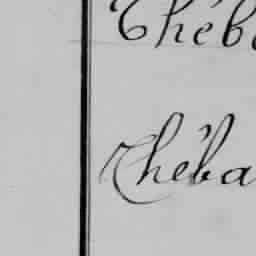 Théb
Théba